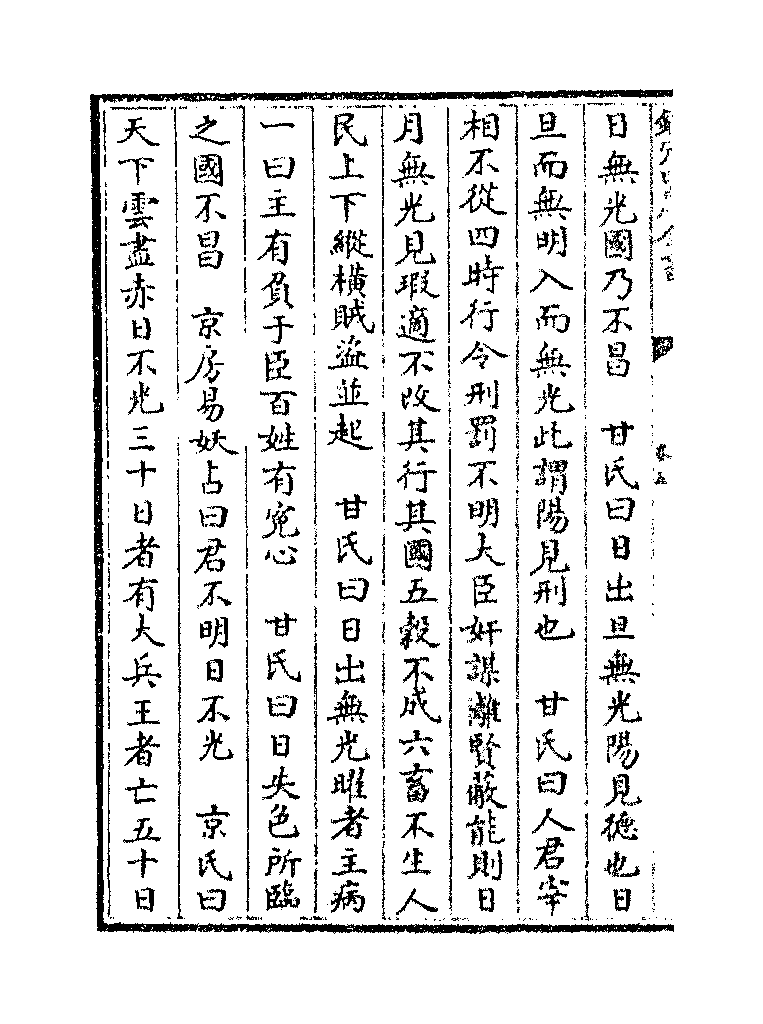 日無光國乃不昌　甘氏曰日出旦無光陽見德也日
旦而無明入而無光此謂陽見刑也　甘氏曰人君宰
相不從四時行令刑罰不明大臣奸謀離賢蔽能則日
月無光見瑕適不改其行其國五穀不成六畜不生人
民上下縱橫賊盜並起　甘氏曰日出無光曜者主病
一曰主有負于臣百姓有寃心　甘氏曰日失色所臨
之國不昌　京房易妖占曰君不明日不光　京氏曰
天下雲盡赤日不光三十日者有大兵王者亡五十日